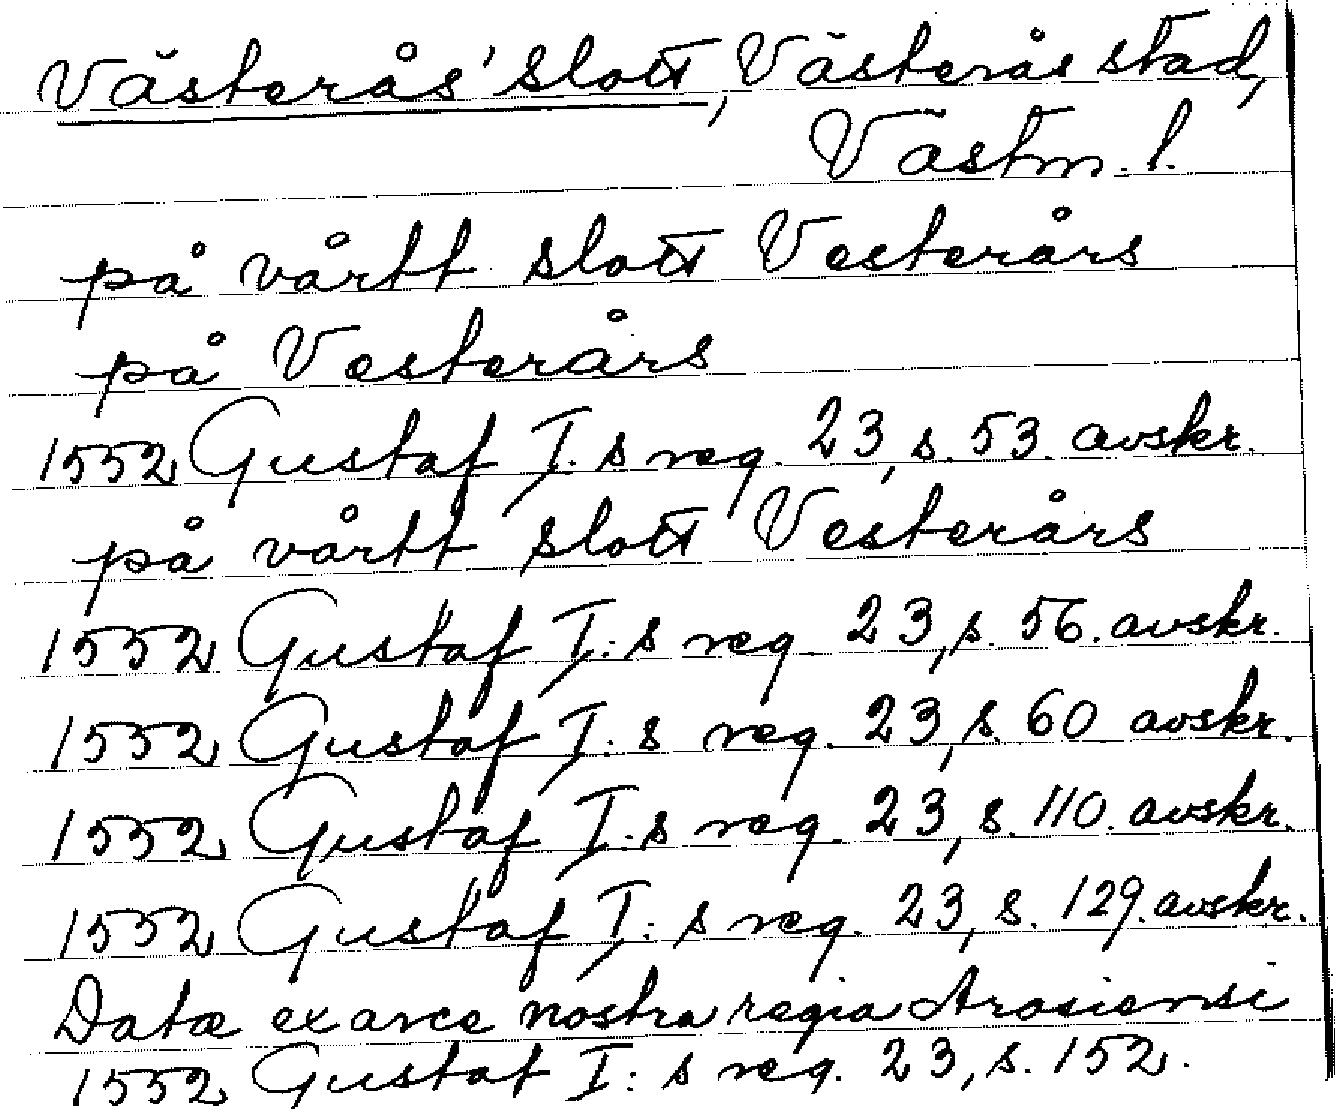 Västerås' slott, Västerås stad,
Västm. l.
på vårtt slott Vesterårs
på Vesterårs
1552 Gustaf I. s reg. 23, s. 53. avskr.
på vårtt slott Vesterårs
1552 Gustaf I: s reg. 23, s. 56. avskr.
1552 Gustaf I: s reg. 23, s. 60 avskr.
1552 Gustaf I: s reg. 23, s. 110. avskr.
1552 Gustaf I: s reg. 23, s. 129. avskr.
Datæ ex arce nostra regia Arosiensi
1552 Gustaf I: s reg. 23, s. 152.